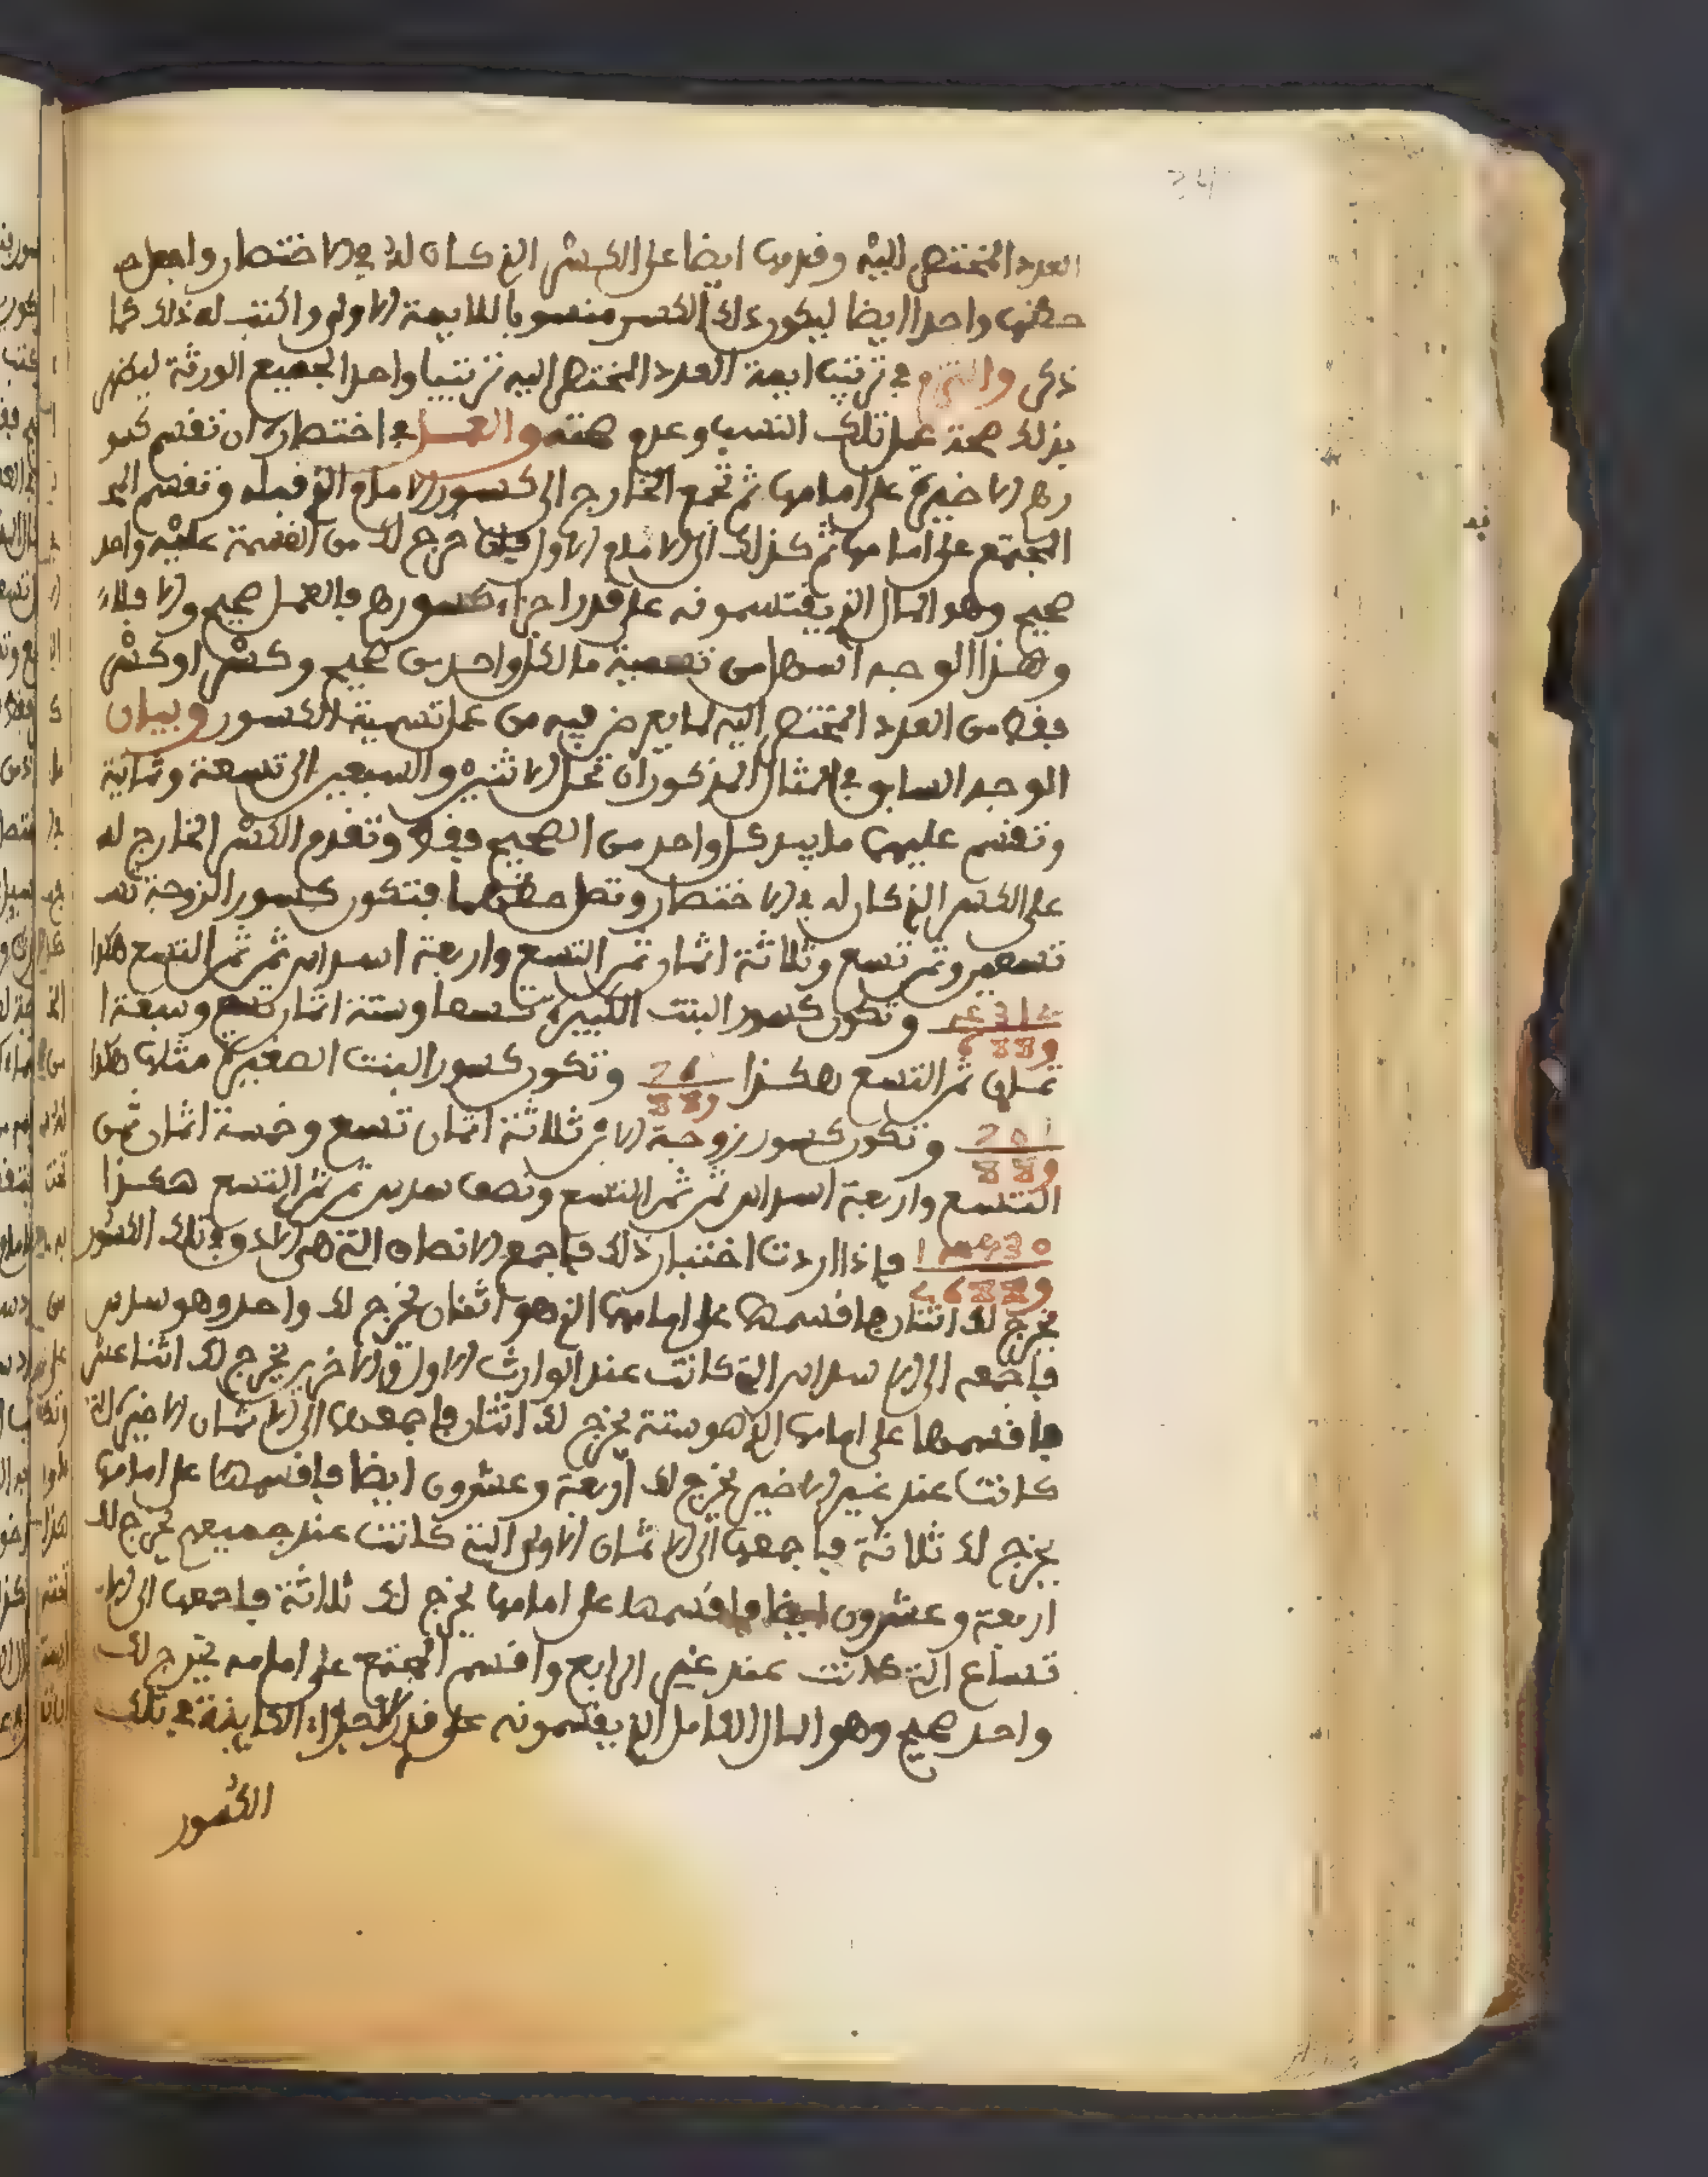 العدد المختصر إليه وقدمها ايضا على الكسر الذي كان له في الاختصار واجعل
خطهما واحدا ايضا ليكون ذلك الكسر منسوبا للايمة الاولى واكتب له ذلك كما
ذكر والتزم في ترتيب ايمة العدد المختصر اليه ترتيبا واحدا لجميع الورثة ليظهر
بذلك صحة عمل تلك النسب وعدم صحته والعمل في اختصاره ان تقسم كسو
رهم الاخيرة على امامها ثم تجمع الخارج الى كسور الامام الذي قبله وتقسم
المجتمع على امامها ثم كذلك الى الامام الاول فإن خرج لك من القسمة عليه واحد
صحيح وهو المال الذي يقتسمونه على قدر اجزاء كسورهم فالعمل صحيح والا فلا
وهذا الوجه اسهل من تسمية ما لكل واحد من صحيح وكسر او كسر
فقط من العدد المختصر اليه لما يعرض فيه من عمل تسمية الكسور وبيان
الوجه السابق في المثال المذكور ان تحل الاثنين والسبعين الى تسعة وثمانية
وتقسم عليهما ما بيد كل واحد من الصحيح فقط وتقدم الكسر الخارج له
على الكسر الذي كان له في الاختصار وتصل خطهما فتكون كسور الزوجة
تسعين وثمن تسع وثلاثة اثمان ثمن التسع واربعة اسداس ثمن ثمن التسع هكذا
وتكون كسور البنت الكبيرة تسعا وستة اثمان تسع وسبعة ا
ثمان ثمن التسع هكذا وتكون كسور البنت الصغيرة مثلها هكذا
وتكون كسور زوجة الابن ثلاثة اثمان تسع وخمسة اثمان ثمن
التسع واربعة اسداس ثمن ثمن التسع ونصف سدس ثمن ثمن التسع هكذا
9 8 8 6 2
فإذا اردت اختبار ذلك فاجمع الانصاف التي هي الادون في تلك الكسور
يخرج لك اثنان فاقسمها على امامها الذي هو اثنان يخرج لك واحد وهو سدس
فاجمعه الى الاسداس التي كانت عند الوارث الاول والاخر يخرج لك اثنا عشر
فاقسمها على امامها الذي هو ستة يخرج لك اثنان فاجمعها الى الاثمان الاخيرة التي
كانت عند غير الاخير يخرج لك اربعة وعشرون ايضا فاقسمها على امامها
يخرج لك ثلاثة فاجمعها الى الاثمان الاولى التي كانت عند جميعهم يخرج لك
اربعة وعشرون ايضا فاقسمها على امامها يخرج لك ثلاثة فاجمعها الى الا
تساع التي كانت عند غير الرابع واقسم المجتمع على امامه يخرج لك
واحد صحيح وهو المال الكامل الذي يقتسمونه على قدر الاجزاء الكاينة في تلك
الكسور